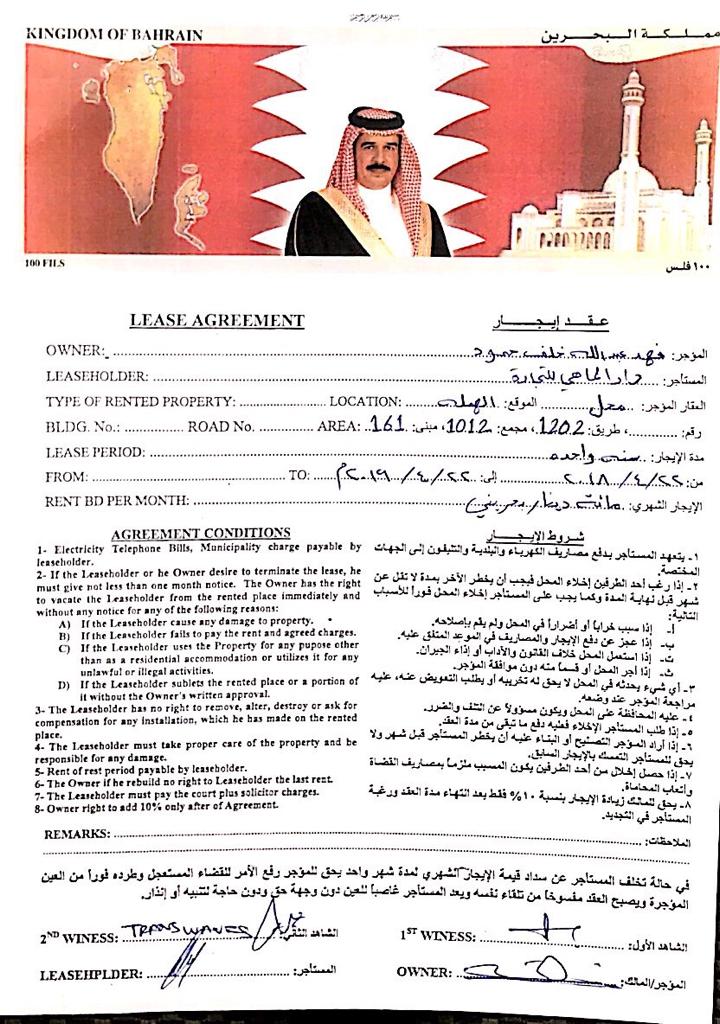 KINGDOM OF BAHRAIN
مملكة البحرين
100 FILS
١٠٠ فلس
LEASE AGREEMENT
عقد إيجار
OWNER:
المؤجر: فهد عبدالله خلف حمود
LEASEHOLDER:
المستاجر: دار الماهي للتجارة
TYPE OF RENTED PROPERTY: LOCATION:
العقار المؤجر: محل الموقع: الهملة
BLDG. No.: ROAD No. AREA:
رقم: ، طريق: 1202، مجمع: 1012، مبنى: 161
LEASE PERIOD:
مدة الإيجار: سنة واحده
FROM: TO:
من: ٢٠١٨/٤/٢٢ إلى: ٢٠١٩/٤/٢٢م
RENT BD PER MONTH:
الإيجار الشهري: مائت دينار بحريني
AGREEMENT CONDITIONS
1- Electricity Telephone Bills, Municipality charge payable by
leaseholder.
2- If the Leaseholder or he Owner desire to terminate the lease, he
must give not less than one month notice. The Owner has the right
to vacate the Leaseholder from the rented place immediately and
without any notice for any of the following reasons:
A) If the Leaseholder cause any damage to property.
B) If the Leaseholder fails to pay the rent and agreed charges.
C) If the Leaseholder uses the Property for any pupose other
than as a residential accommodation or utilizes it for any
unlawful or illegal activities.
D) If the Leaseholder sublets the rented place or a portion of
it without the Owner's written approval.
3- The Leaseholder has no right to remove, alter, destroy or ask for
compensation for any installation, which he has made on the rented
place.
4- The Leaseholder must take proper care of the property and be
responsible for any damage.
5- Rent of rest period payable by leaseholder.
6- The Owner if he rebuild no right to Leaseholder the last rent.
7- The Leaseholder must pay the court plus solicitor charges.
8- Owner right to add 10% only after of Agreement.
شروط الإيجار
١- يتعهد المستاجر بدفع مصاريف الكهرباء والبلدية والتليفون إلى الجهات
المختصة.
٢- إذا رغب أحد الطرفين إخلاء المحل فيجب أن يخطر الآخر بمدة لا تقل عن
شهر قبل نهاية المدة وكما يجب على المستأجر إخلاء المحل فوراً للأسباب
التالية:
أ- إذا سبب خراباً أو أضراراً في المحل ولم يقم بإصلاحه.
ب- إذا عجز عن دفع الإيجار والمصاريف في الموعد المتفق عليه.
ت- إذا استعمل المحل خلاف القانون والآداب أو إذاء الجيران.
ث- إذا أجر المحل أو قسماً منه دون موافقة المؤجر.
٣- أي شيء يحدثه في المحل لا يحق له تخريبه أو يطلب التعويض عنه، عليه
مراجعة المؤجر عند وضعه.
٤- عليه المحافظة على المحل ويكون مسؤولاً عن التلف والضرر.
٥- إذا طلب المستأجر الإخلاء فعليه دفع ما تبقى من مدة العقد.
٦- إذا أراد المؤجر التصليح أو البناء عليه أن يخطر المستأجر قبل شهر ولا
يحق للمستأجر التمسك بالإيجار السابق.
٧- إذا حصل إخلال من أحد الطرفين يكون المسبب ملزماً بمصاريف القضاة
وأتعاب المحاماة.
٨- يحق للمالك زيادة الإيجار بنسبة ١٠% فقط بعد انتهاء مدة العقد ورغبة
المستأجر في التجديد.
REMARKS:
الملاحظات:
في حالة تخلف المستاجر عن سداد قيمة الإيجار الشهري لمدة شهر واحد يحق للمؤجر رفع الأمر للقضاء المستعجل وطرده فوراً من العين
المؤجرة ويصبح العقد مفسوخاً من تلقاء نفسه ويعد المستاجر غاصباً للعين دون وجهة حق ودون حاجة لتنبيه أو إنذار.
2ND WINESS: TRANSWAVES الشاهد الثاني:
1ST WINESS: الشاهد الأول:
LEASEHPLDER: المستاجر:
OWNER: المؤجر/المالك: